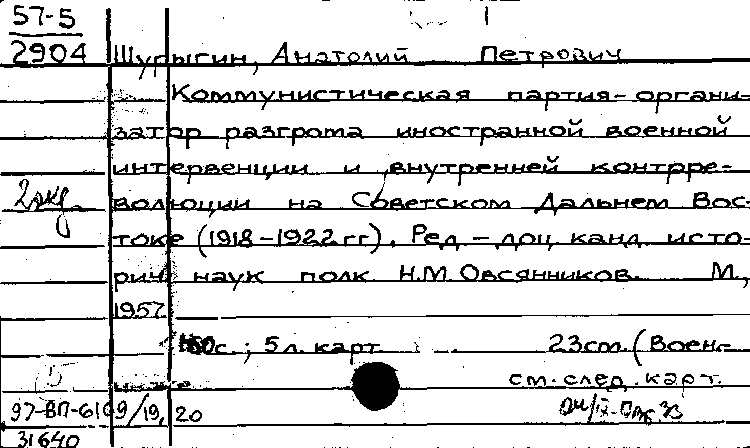 57-5
2904
Шурыгин, Анатолий Петрович
Коммунистическая партия-органи-
затор разгрома иностранной военной
интервенции и внутренней контрре-
2 экз.
волюции на Советском Дальнем Вос-
токе (1918-1922 гг). Ред. - доц. канд. исто-
рич наук полк. Н.М. Овсянников. М.,
1957.
160с.; 5 л. карт. 23 см. (Воен-
см. след. карт.
97-ВП-6109/19, 20
31640